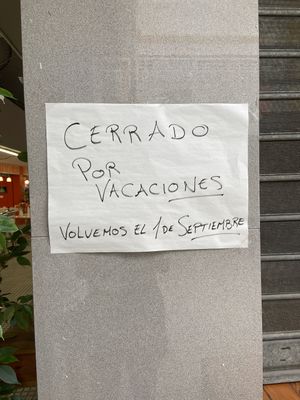 CERRADO
POR
VACACIONES
VOLVEMOS EL 1 DE SEPTIEMBRE